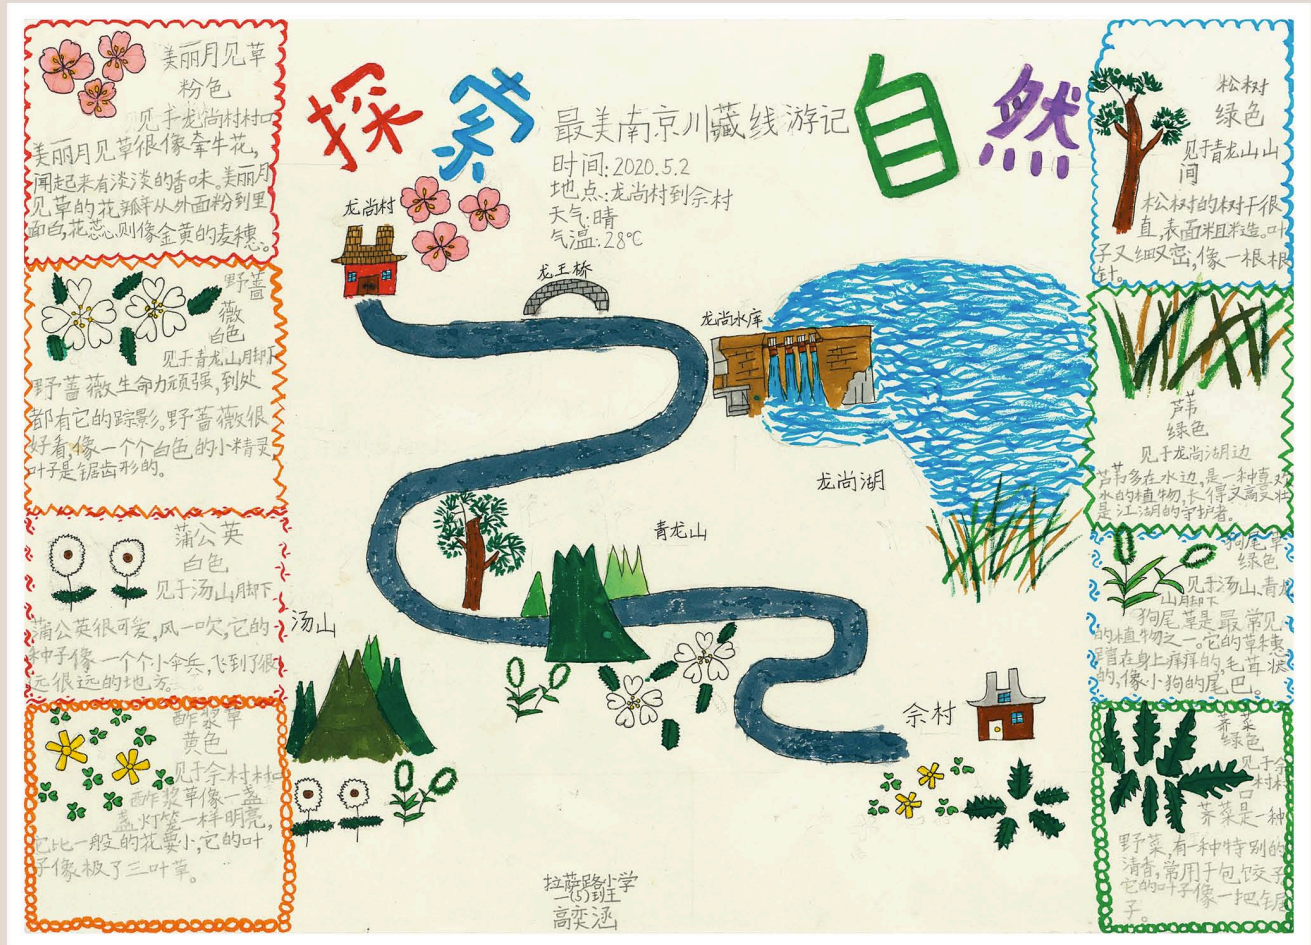 探索自然
最美南京川藏线游记
时间:2020.5.2
地点:龙尚村到佘村
天气:晴
气温:28℃
美丽月见草
粉色
见于龙尚村村口
美丽月见草很像牵牛花,
闻起来有淡淡的香味。美丽月
见草的花瓣从外面粉到里
面白,花蕊则像金黄的麦穗。
野蔷
薇
白色
见于青龙山脚下
野蔷薇生命力顽强,到处
都有它的踪影。野蔷薇很
好看,像一个个白色的小精灵,
叶子是锯齿形的。
蒲公英
白色
见于汤山脚下
蒲公英很可爱,风一吹,它的
种子像一个个小伞兵,飞到了很
远很远的地方。
酢浆草
黄色
见于佘村村口
酢浆草像一盏
盏灯笼一样明亮,
它比一般的花要小,它的叶
子像极了三叶草。
龙尚村
龙王桥
龙尚水库
龙尚湖
青龙山
汤山
佘村
拉萨路小学
一(5)班
高奕涵
松树
绿色
见于青龙山山
间
松树的树干很
直,表面粗糙。叶
子又细又密,像一根根
针。
芦苇
绿色
见于龙尚湖边
芦苇多在水边,是一种喜欢
水的植物,长得又高又壮
是江湖的守护者。
狗尾草
绿色
见于汤山、青龙
山脚下
狗尾草是最常见
的植物之一。它的草穗
蹭在身上痒痒的,毛茸茸
的,像小狗的尾巴。
荠菜
绿色
见于佘
村村
口
荠菜是一种
野菜,有一种特别的
清香,常用于包饺子
它的叶子像一把锯
子。